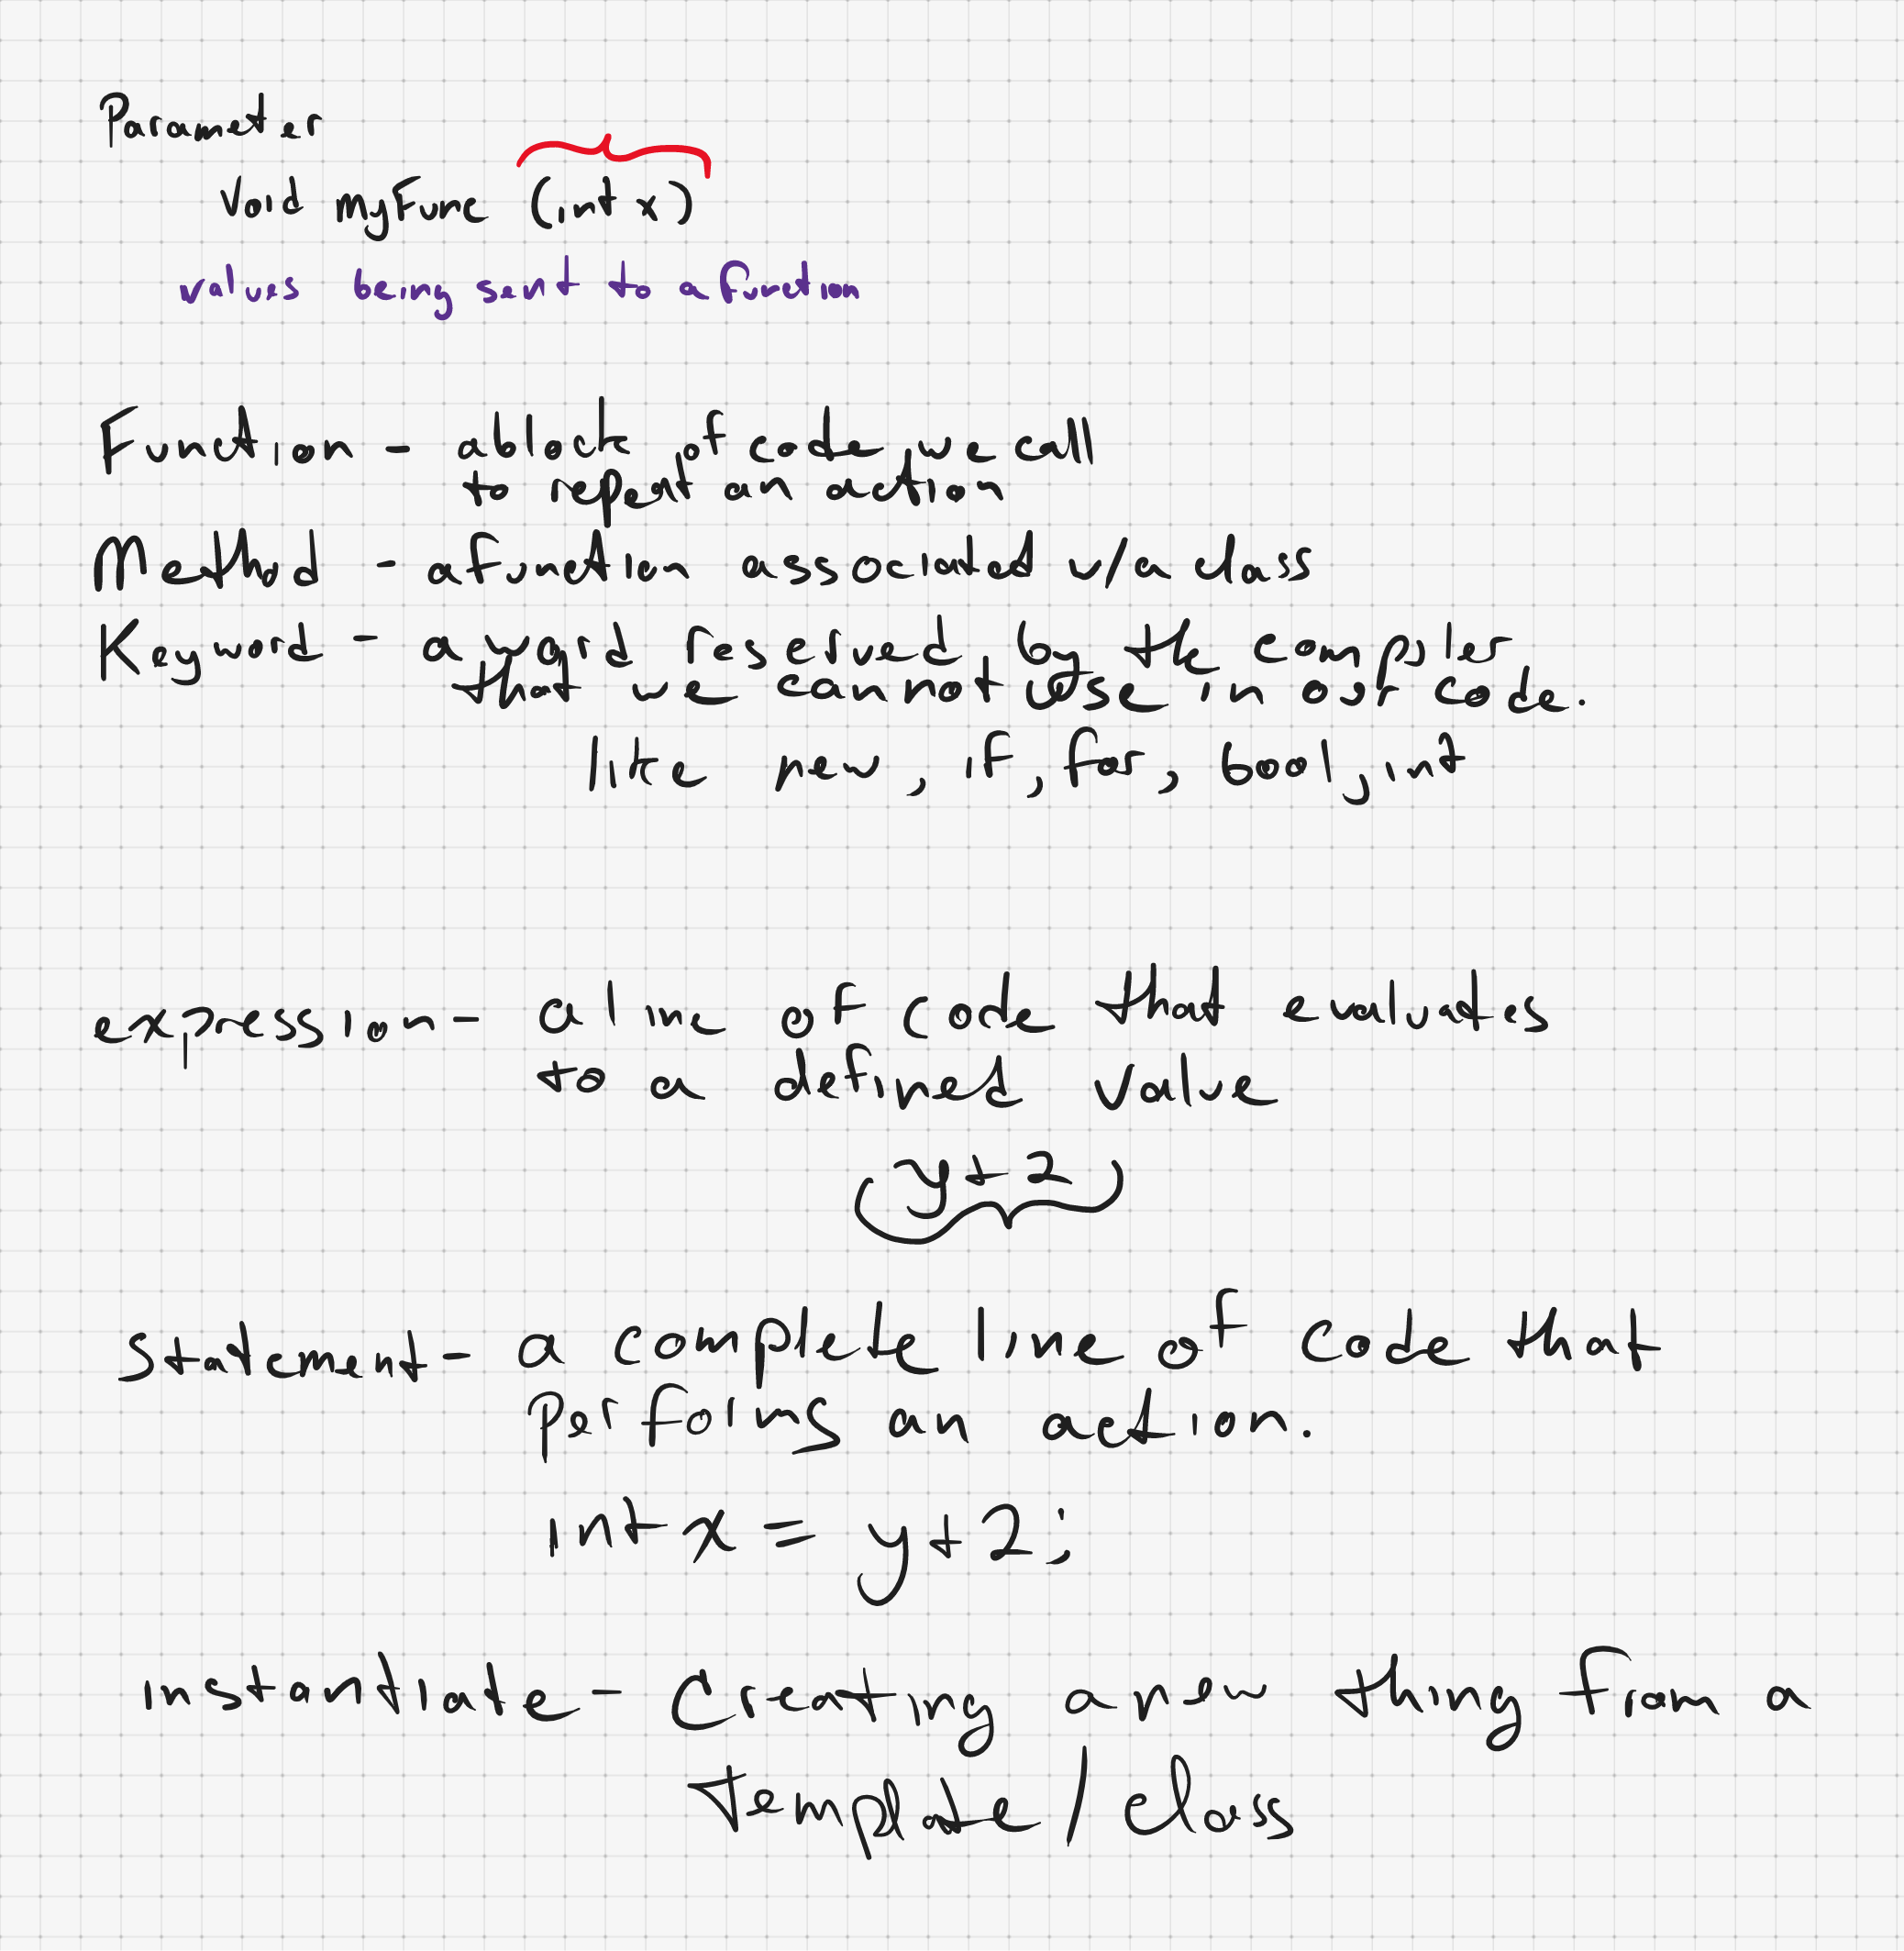 Parameter
Void myFunc (int x)
values being sent to a function
Function - a block of code we call
to repeat an action
Method - a function associated w/a class
Keyword - a word reserved by the compiler
that we cannot use in our code.
like new, if, for, bool, int
expression - a line of code that evaluates
to a defined value
y+2
Statement - a complete line of code that
performs an action.
int x = y+2;
instantiate - Creating a new thing from a
Template / class